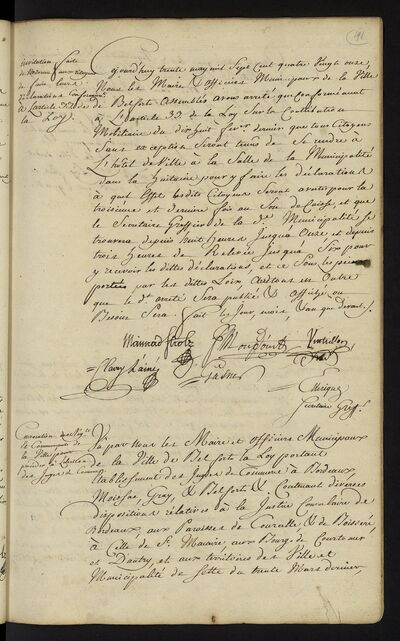 91
invitation faite
de faire leurs
déclarations Conformément
à l'article 33 de
la Loy
Aujourd'huy trente may mil Sept Cent quatre vingt onze,
Nous les Maire & officiers Municipaux de la Ville
de Belfort assemblés avons arreté que conformément
à l'article 33 de la Loy Sur la Contribution
Mobiliaire du dix huit fev.r dernier que tous Citoyens
Sans exception Seront tenus de Se rendre à
L'hôtel de Ville à la Salle de la Municipalité
Dans la huitaine pour y faire les déclarations
à quel effet lesdits Citoyens Seront avertis pour la
troisième et derniere fois au Son de Caisse et que
le Secretaire Greffier de la d.e Municipalité Se
trouvera depuis huit heures jusqu'à Onze et depuis
trois heures de Relevée jusqu'à Six pour
y recevoir les dittes déclarations, et ce Sous les peines
portées par les dittes Loix Arrêtons en Outre
que le d.t arreté Sera publié & affiché ou
Besoin Sera. fait les Jour, mois, & an que devant.
Secretaire Greff.
la Ville pour
des Juges de Commerce
Vu par Nous les Maire et officiers Municipaux
de la Ville de Belfort la Loy portant
Etablissement des Juges de Commerce à Bordeaux,
Moissac, Gray, & Belfort & Contenant diverses
dispositions relatives à la Justice Consulaire de
Bordeaux aux Paroisses de &
à Celle de S.t Maurice, aux Bourgs de Courtenay
et Dautry, et aux territoires des Ville et
Municipalité de Cette du trente Mars dernier,